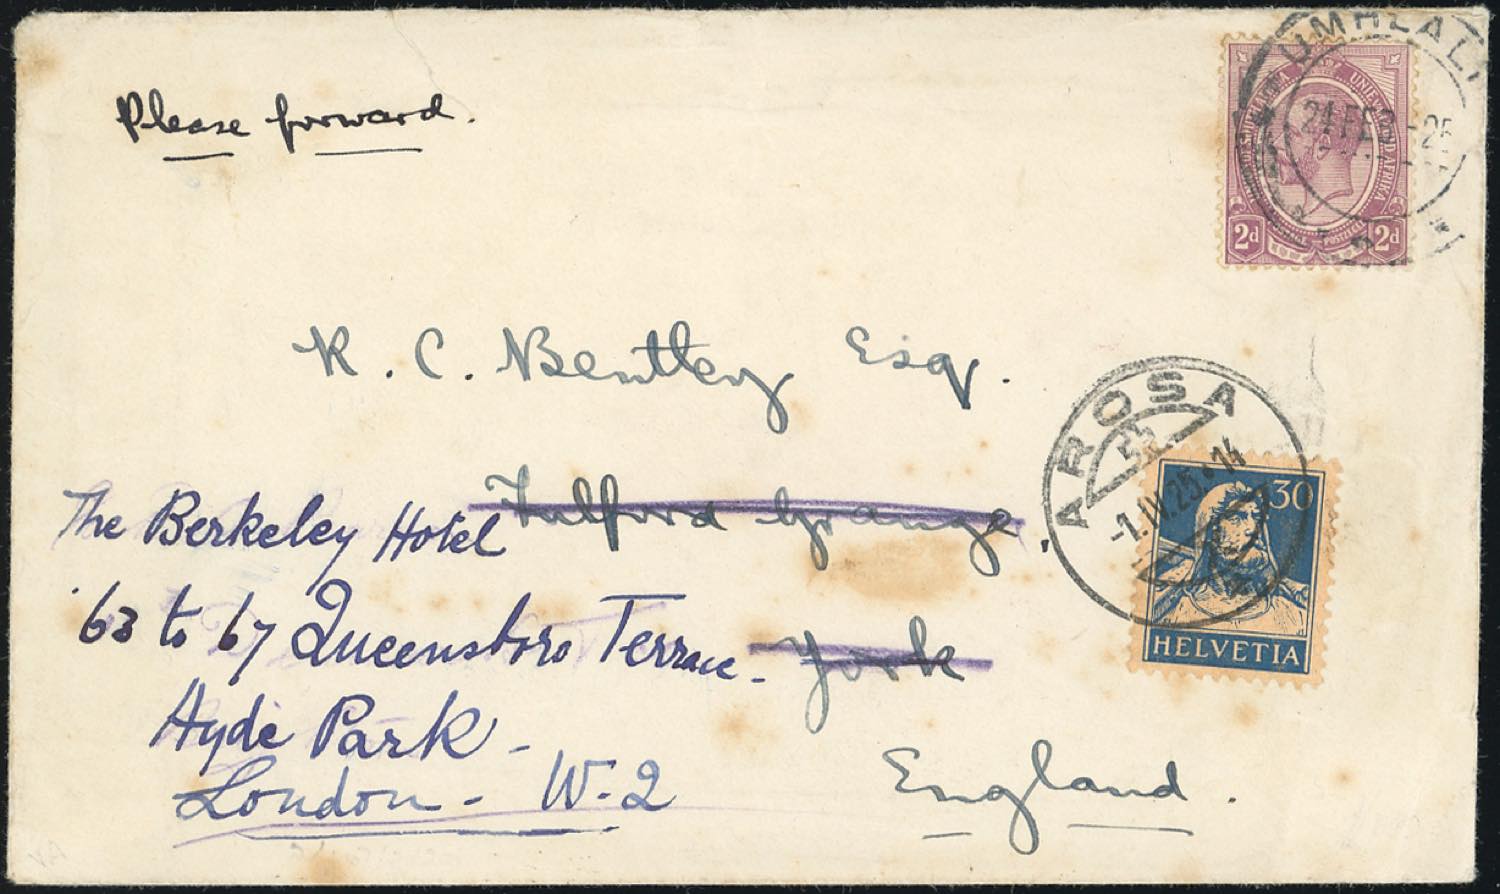 Please forward.
UMHLALI
21 FEB -25
UNIE VAN ZUID AFRIKA
2d 2d
R. C. Bentley Esq.
AROSA
-1.IV.25.14
30
HELVETIA
Fulford Grange.
York
England.
The Berkeley Hotel
63 to 67 Queensboro Terrace-
Hyde Park-
London- W-2